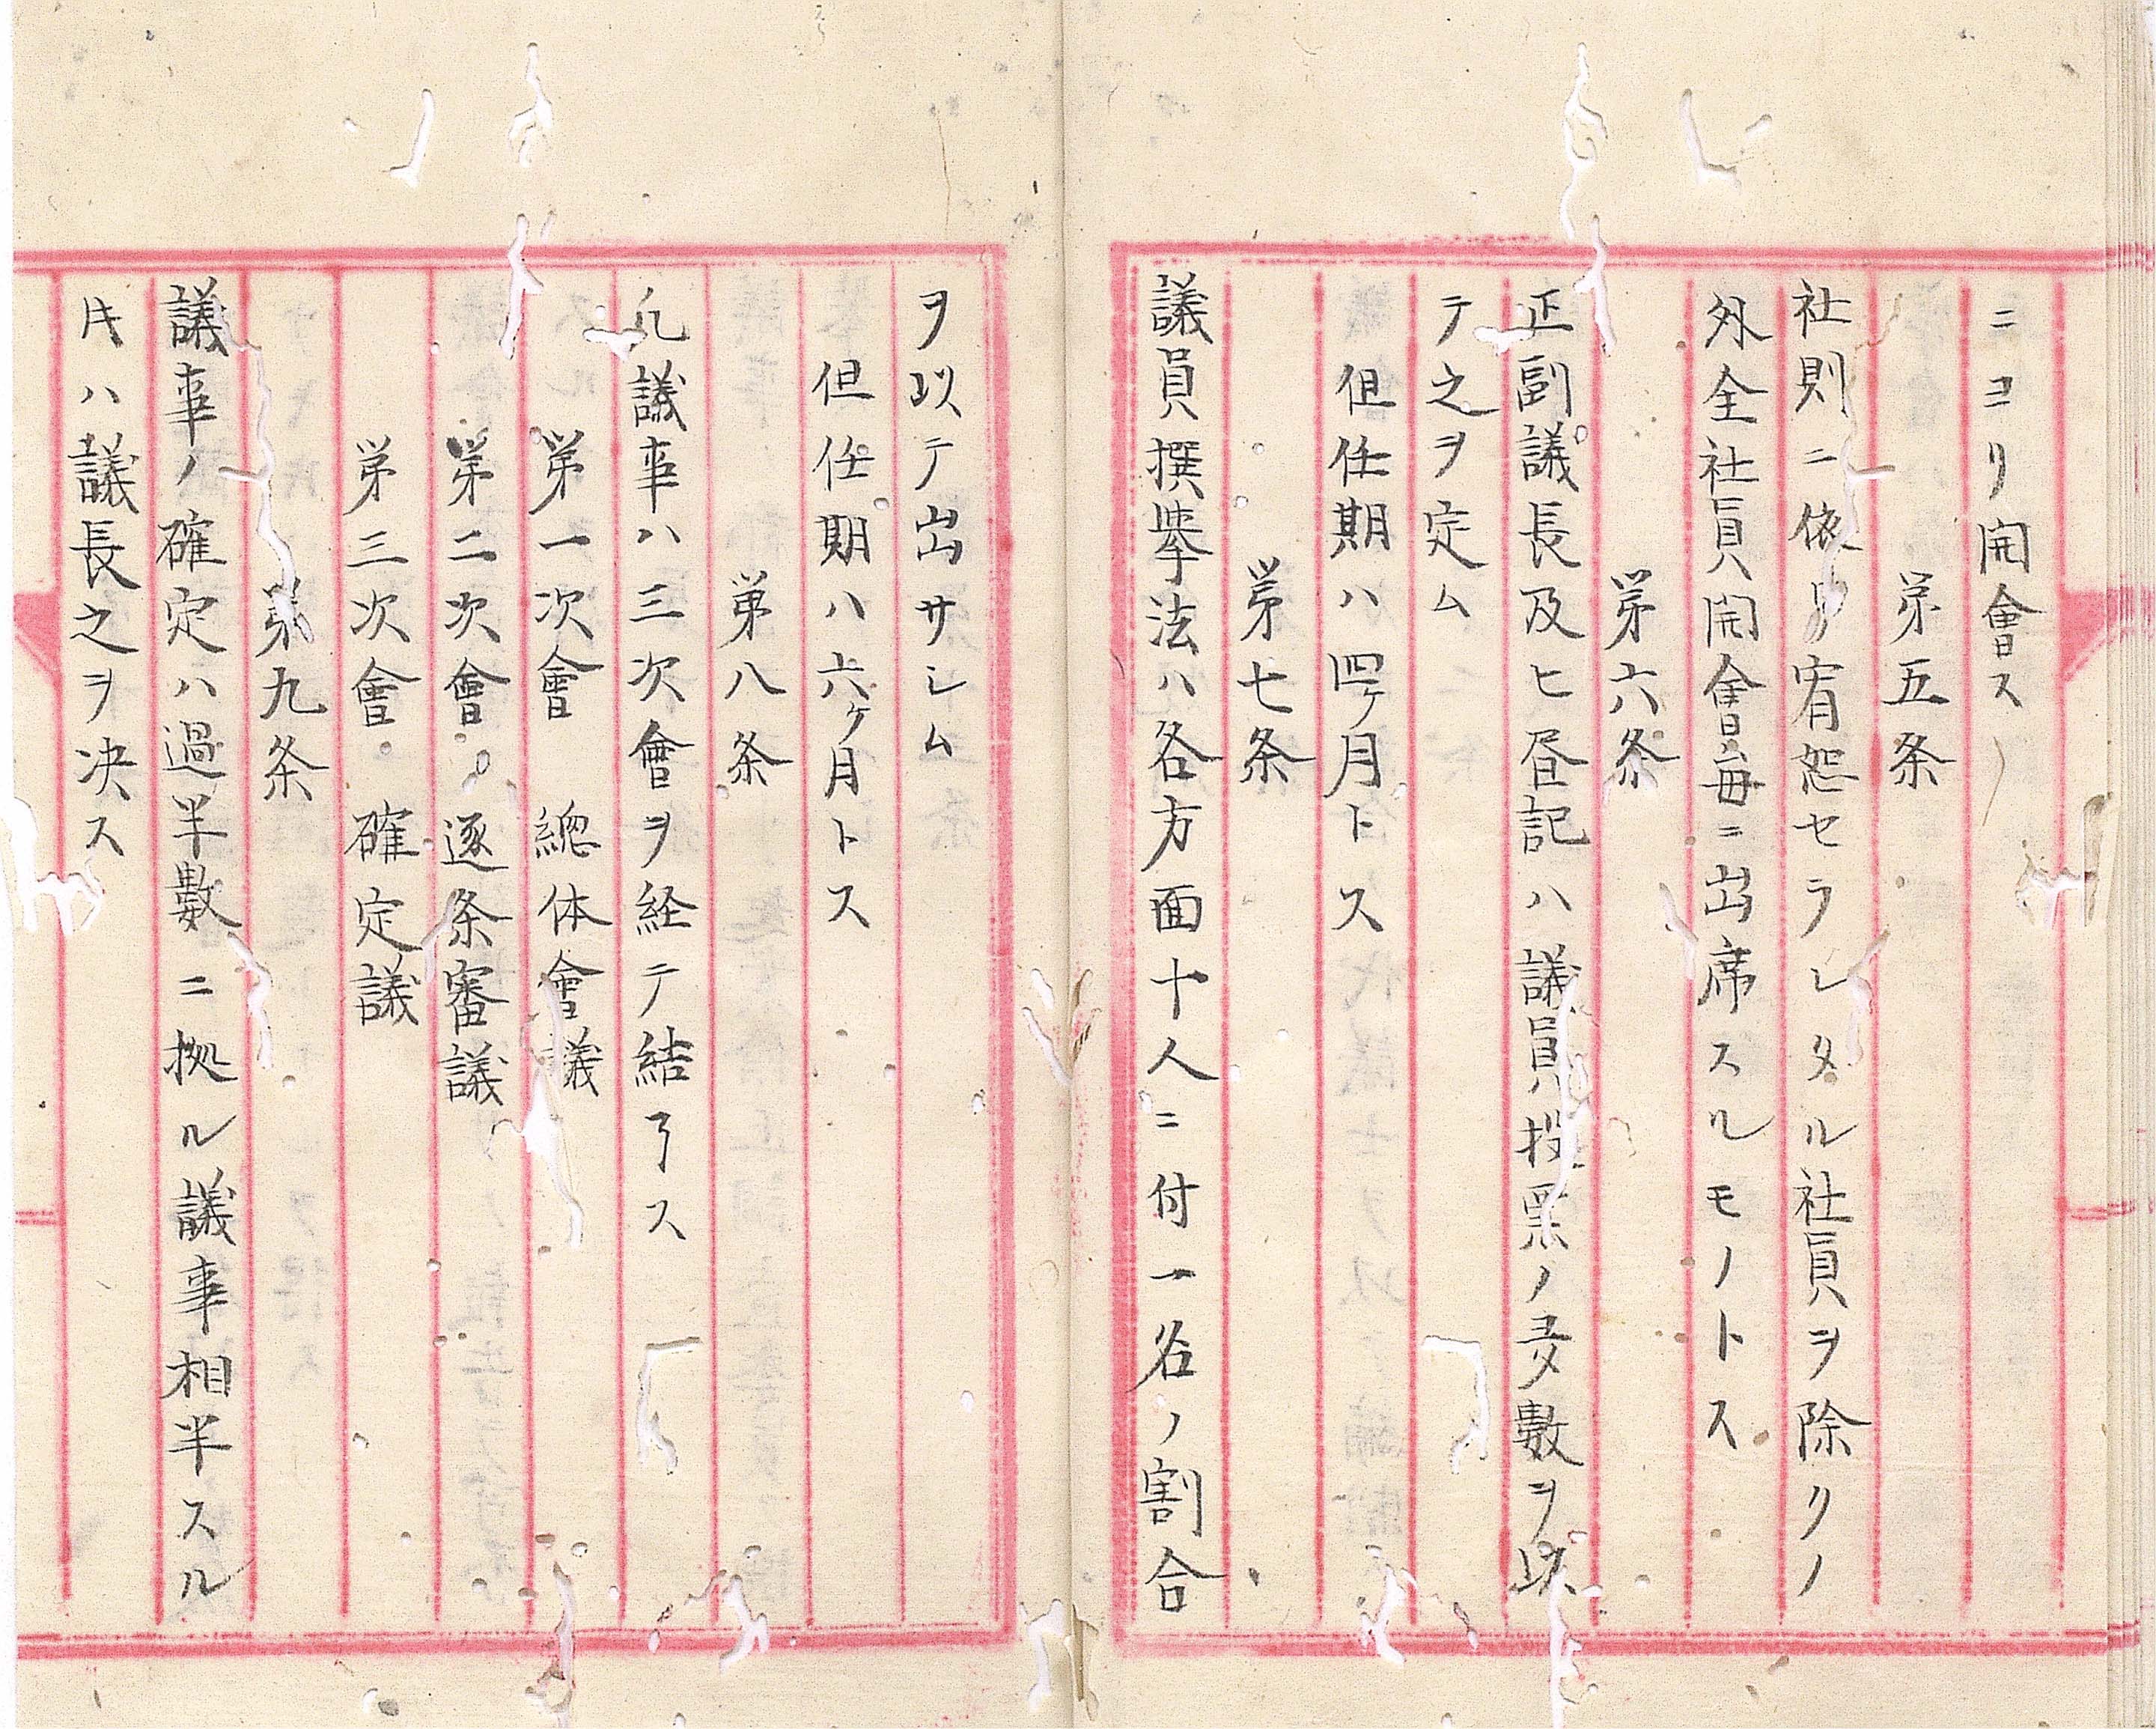 ニヨリ開會ス
第五条
社則ニ依リ宥恕セラレタル社員ヲ除クノ
外全社員開會毎ニ出席スルモノトス
第六条
正副議長及ヒ昼記ハ議員投票ノ多数ヲ以
テ之ヲ定ム
但任期ハ四ケ月トス
第七条
議員撰挙法ハ各方面十人ニ付一名ノ割合
ヲ以テ出サシム
但任期ハ六ケ月トス
第八条
凡議事ハ三次會ヲ経テ結了ス
第一次會 總体會議
第二次會 逐条審議
第三次會 確定議
第九条
議事ノ確定ハ過半數ニ拠ル議事相半スル
時ハ議長之ヲ决ス